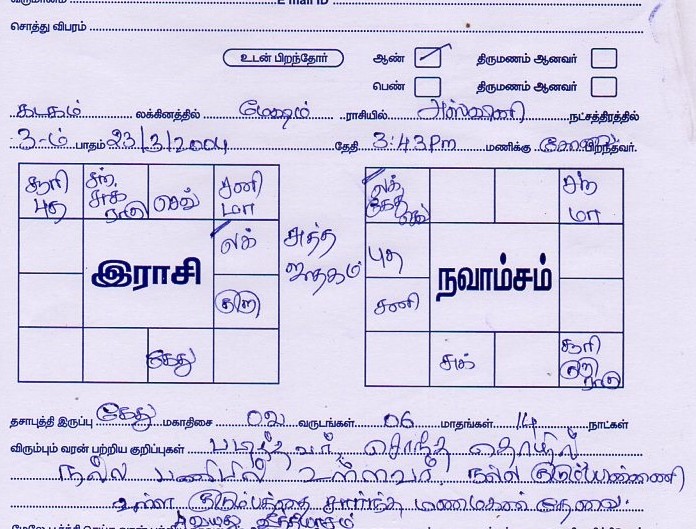 வருமானம் E mail ID
சொத்து விபரம்
உடன் பிறந்தோர் ஆண் திருமணம் ஆனவர்
பெண் திருமணம் ஆனவர்
கடகம் லக்கினத்தில் மேஷம் ராசியில் அஸ்வினி நட்சத்திரத்தில்
3-ம் பாதம் 23/3/2004 தேதி 3:43Pm மணிக்கு பிறந்தவர்.
சூரி புத
சந் சுக் ராகு
செவ்
சனி மா
லக்
குரு
கேது
இராசி
சுத்த ஜாதகம்
லக் கேது செவ்
சந் மா
புத
சனி
சுக்
சூரி குரு ராகு
நவாம்சம்
தசாபுத்தி இருப்பு கேது மகாதிசை 02 வருடங்கள் 06 மாதங்கள் 14 நாட்கள்
விரும்பும் வரன் பற்றிய குறிப்புகள் படித்தவர், சொந்த தொழில்
நல்ல பணியில் உள்ளவர். நல்ல குடும்ப பின்னணி
உள்ள குடும்பத்தை சார்ந்த மணமகன் தேவை.